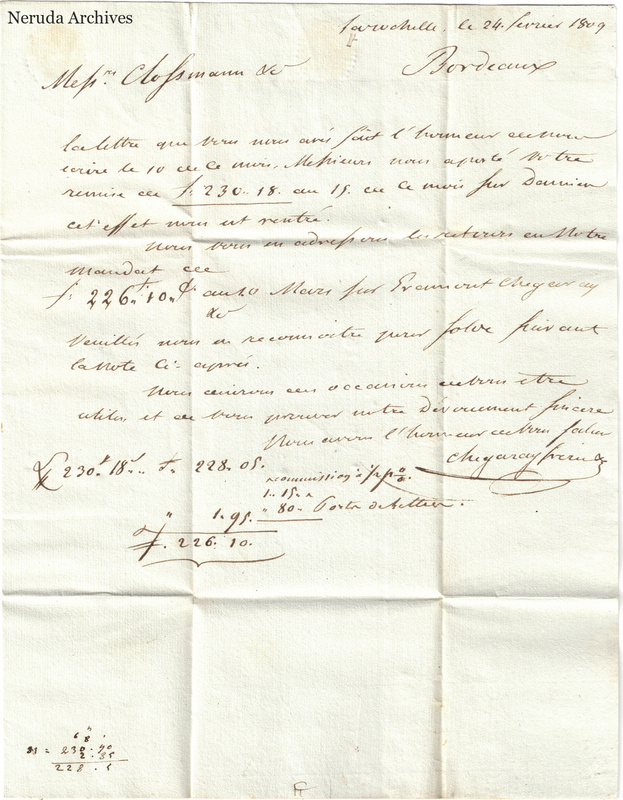 Neruda Archives
Larochelle. le 24. fevrier 1809
Messrs. Clossmann & Ce
Bordeaux
La lettre que vous nous avés fait l'honneur de nous
ecrire le 10 de ce mois, Messieurs nous a porté Votre
remise de f. 230.18. au 15. de ce mois sur Damien
cet effet nous est rentré.
Nous vous en adressons les retours en Notre
mandat de
f. 226.10. au 20 Mars sur Chegaray
& Ce
Veuillés nous en reconnoitre pour solde suivant
la Note Ci-aprés.
Nous desirons des occasions de vous être
utiles et de vous prouver notre Dévouement sincere
Nous avons l'honneur de vous saluer
Chegaray freres
230 18 f. 228.05.
commission à 1/2 p %
1.15.
" 1.95 " 80 Ports de Lettres.
f. 226.10.
6 8
230.40
2.35
228.5